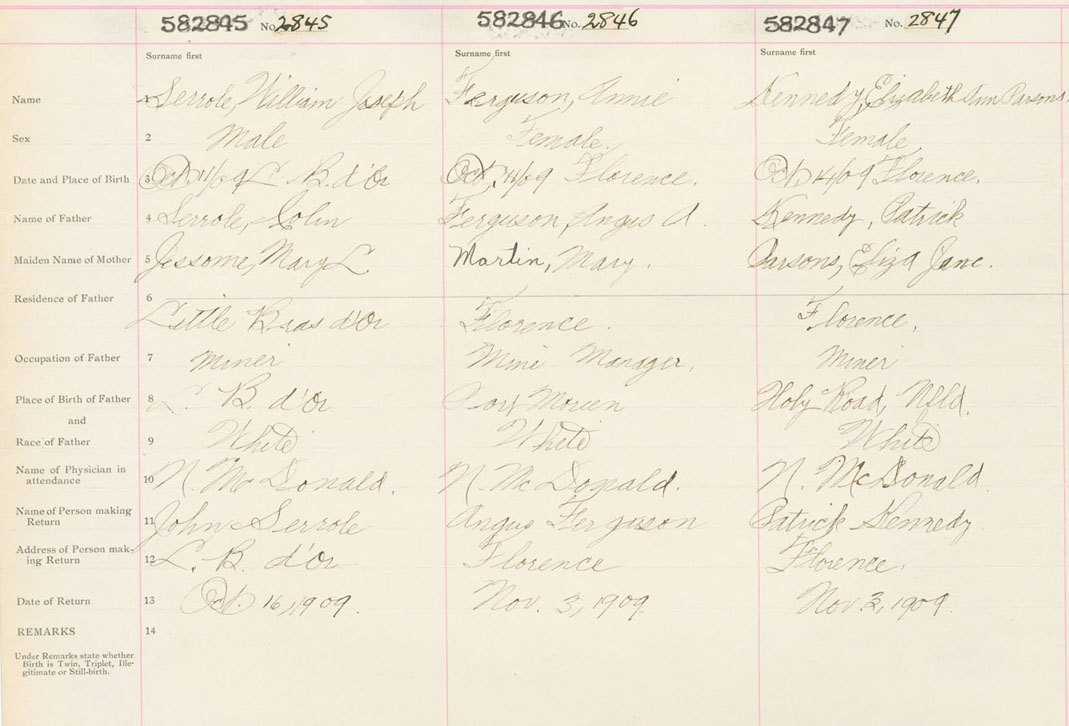 582845 No. 2845 582846 No. 2846 582847 No. 2847
Surname first Surname first Surname first
Name 1 Serrole, William Joseph Ferguson, Annie Kennedy, Elizabeth Ann Parsons
Sex 2 Male Female. Female
Date and Place of Birth 3 Oct. 11/09 L. B. d'Or Oct. 14/09 Florence. Oct. 4/09 Florence.
Name of Father 4 Serrole, John Ferguson, Angus A. Kennedy, Patrick
Maiden Name of Mother 5 Jessome, Mary L. Martin, Mary. Parsons, Eliza Jane.
Residence of Father 6 Little Bras d'Or Florence. Florence.
Occupation of Father 7 Miner Mine Manager. Miner
Place of Birth of Father 8 L. B. d'Or Morien Holy Road, Nfld.
and
Race of Father 9 White White White
Name of Physician in
attendance 10 N. McDonald. N. McDonald. N. McDonald.
Name of Person making
Return 11 John Serrole Angus Ferguson Patrick Kennedy
Address of Person mak-
ing Return 12 L. B. d'Or Florence Florence.
Date of Return 13 Oct. 16, 1909. Nov. 3, 1909 Nov 3, 1909.
REMARKS 14
Under Remarks state whether
Birth is Twin, Triplet, Ille-
gitimate or Still-birth.